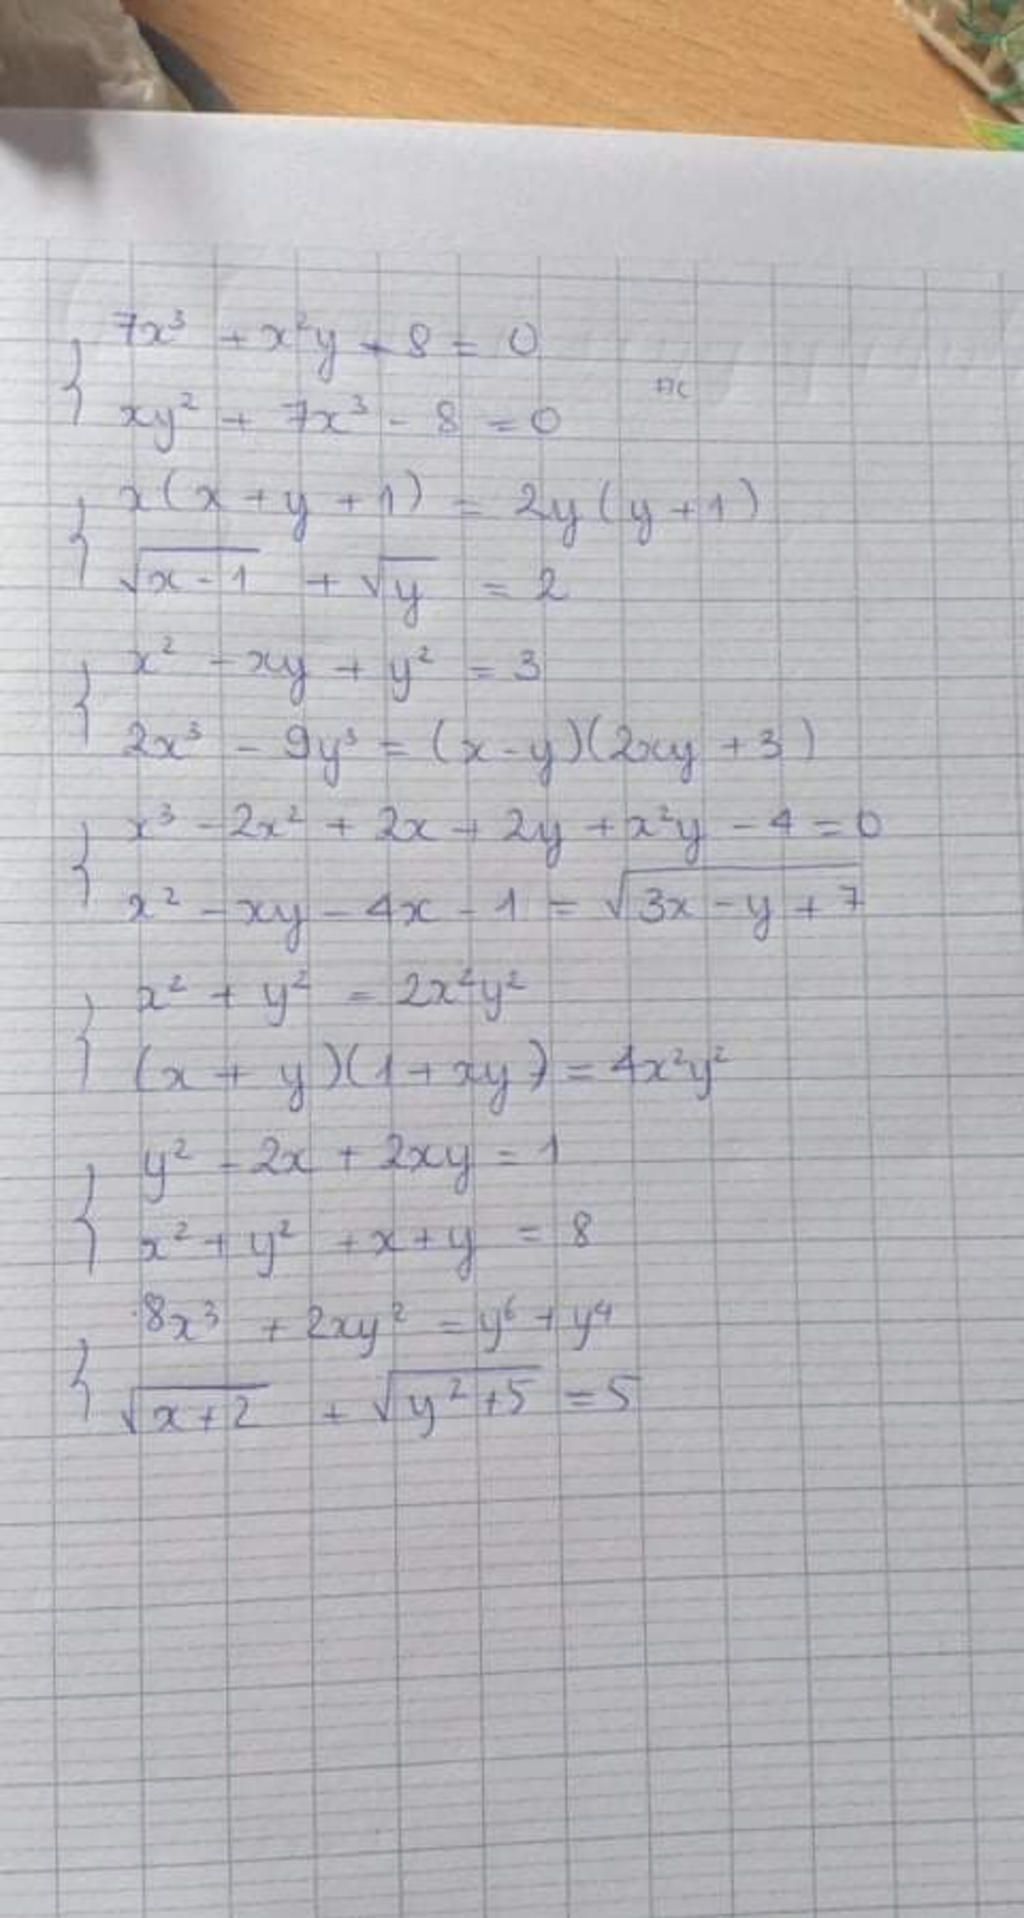 7x³ + x²y - 8 = 0
xy² + 7x³ - 8 = 0
x(x + y + 1) = 2y(y + 1)
√(x - 1) + √y = 2
x² - xy + y² = 3
2x³ - 9y³ = (x - y)(2xy + 3)
x³ - 2x² + 2x + 2y + x²y - 4 = 0
x² - xy - 4x - 1 = √(3x - y + 7)
x² + y² = 2x²y²
(x + y)(1 + xy) = 4x²y²
y² - 2x + 2xy = 1
x² + y² + x + y = 8
8x³ + 2xy² = y⁶ + y⁴
√(x + 2) + √(y² + 5) = 5